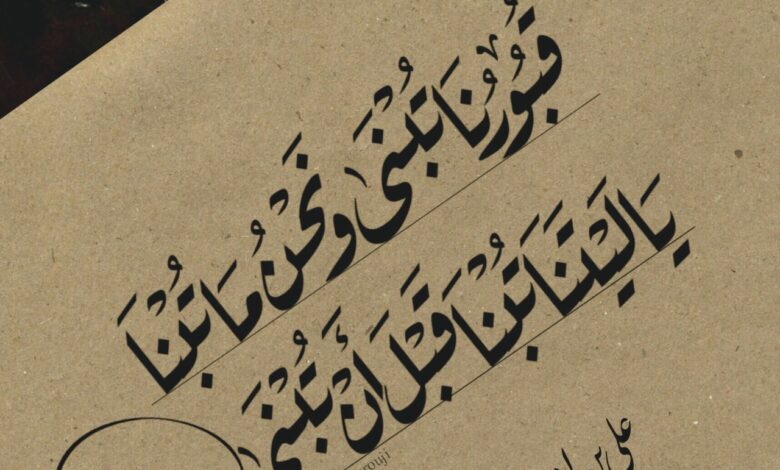 قُبُورُنَا تُبْنَى ونَحْنُ مَا تُبْنَا
يَا لَيْتَنَا تُبْنَا قَبْلَ أَنْ تُبْنَى
علي
rouji